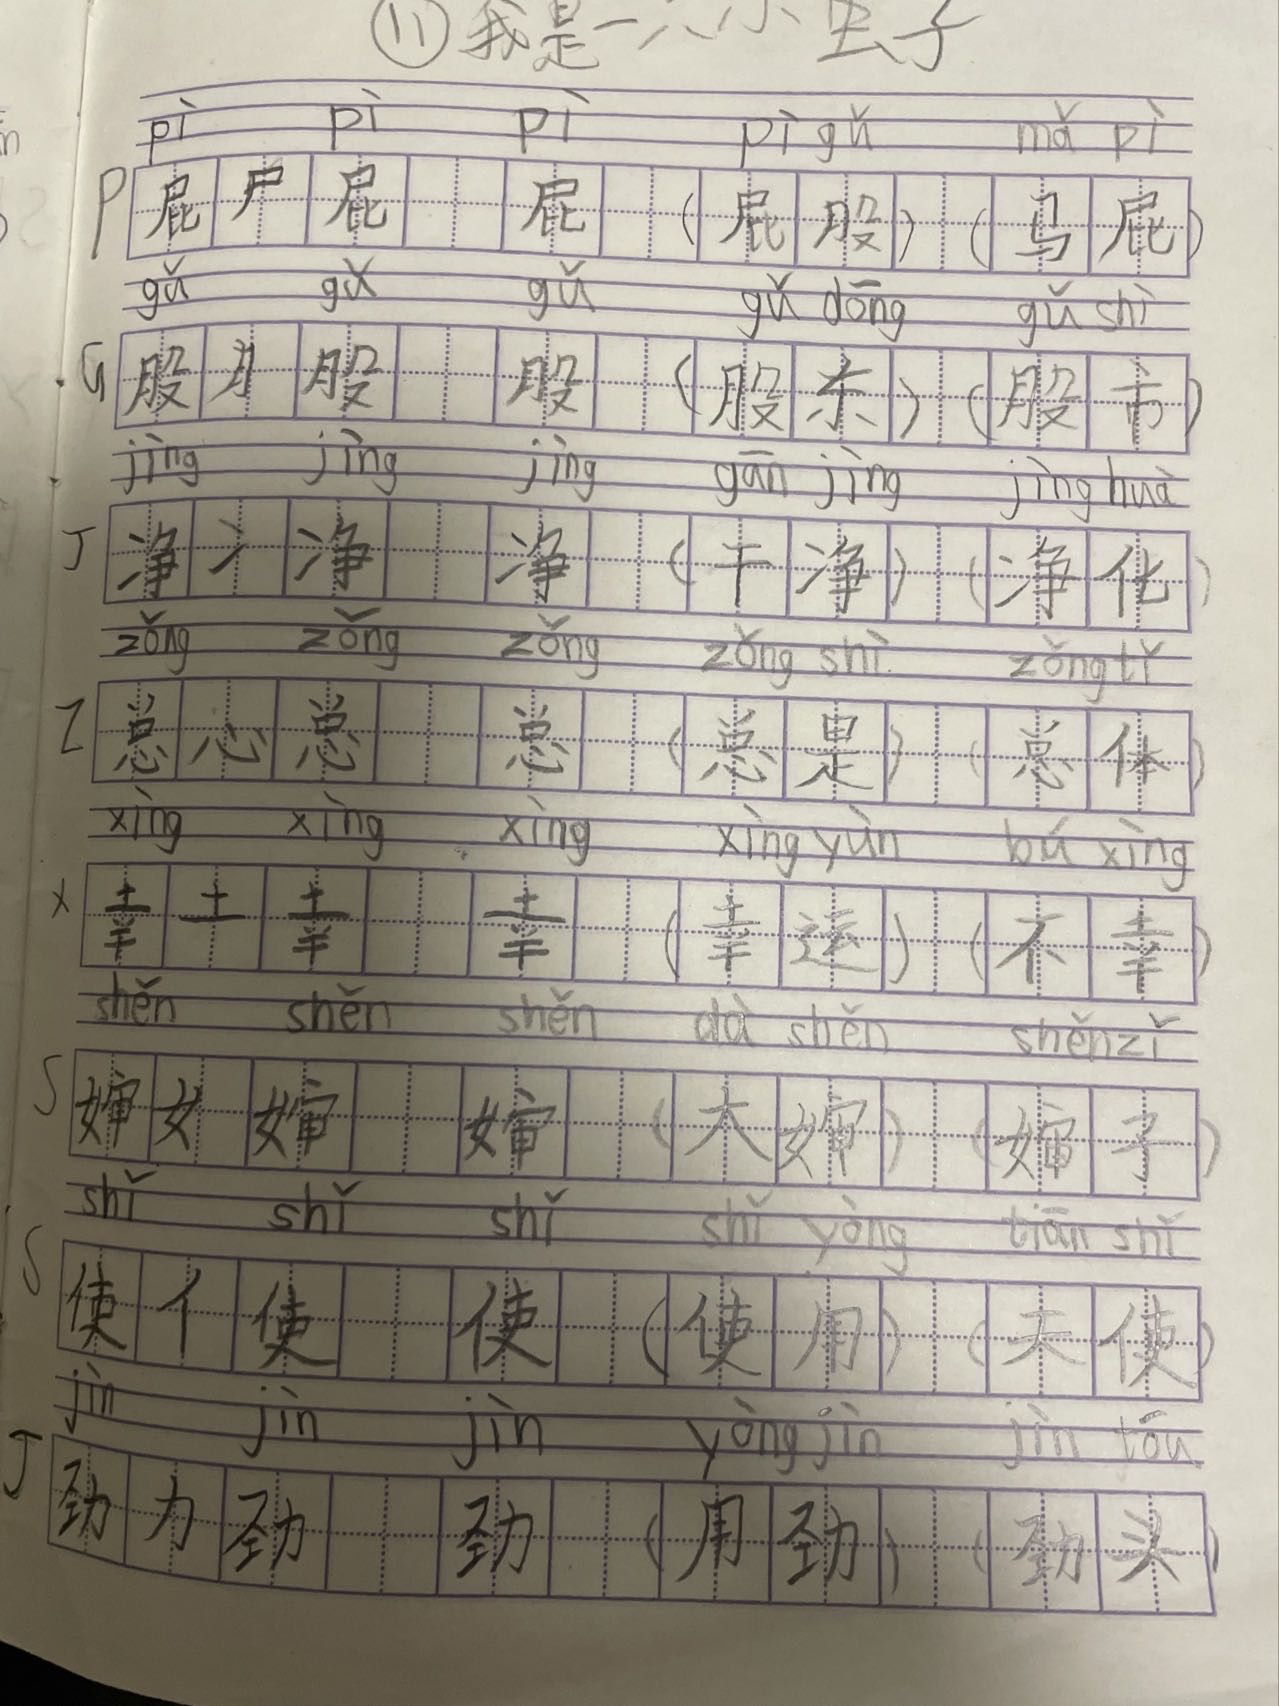 ⑪我是一只小虫子
pì pì pì pì gǔ mǎ pì
P 屁 尸 屁 屁 (屁股) (马屁)
gǔ gǔ gǔ gǔ dōng gǔ shì
G 股 月 股 股 (股东) (股市)
jìng jìng jìng gān jìng jìng huà
J 净 冫 净 净 (干净) (净化)
zǒng zǒng zǒng zǒng shì zǒng tǐ
Z 总 心 总 总 (总是) (总体)
xìng xìng xìng xìng yùn bú xìng
X 幸 土 幸 幸 (幸运) (不幸)
shěn shěn shěn dà shěn shěn zǐ
S 婶 女 婶 婶 (大婶) (婶子)
shǐ shǐ shǐ shǐ yòng tiān shǐ
S 使 亻 使 使 (使用) (天使)
jìn jìn jìn yòng jìn jìn tóu
J 劲 力 劲 劲 (用劲) (劲头)